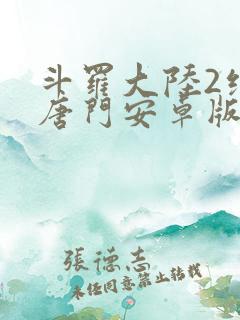 斗羅大陸2
唐門安卓版
張德志
未经同意禁止转载